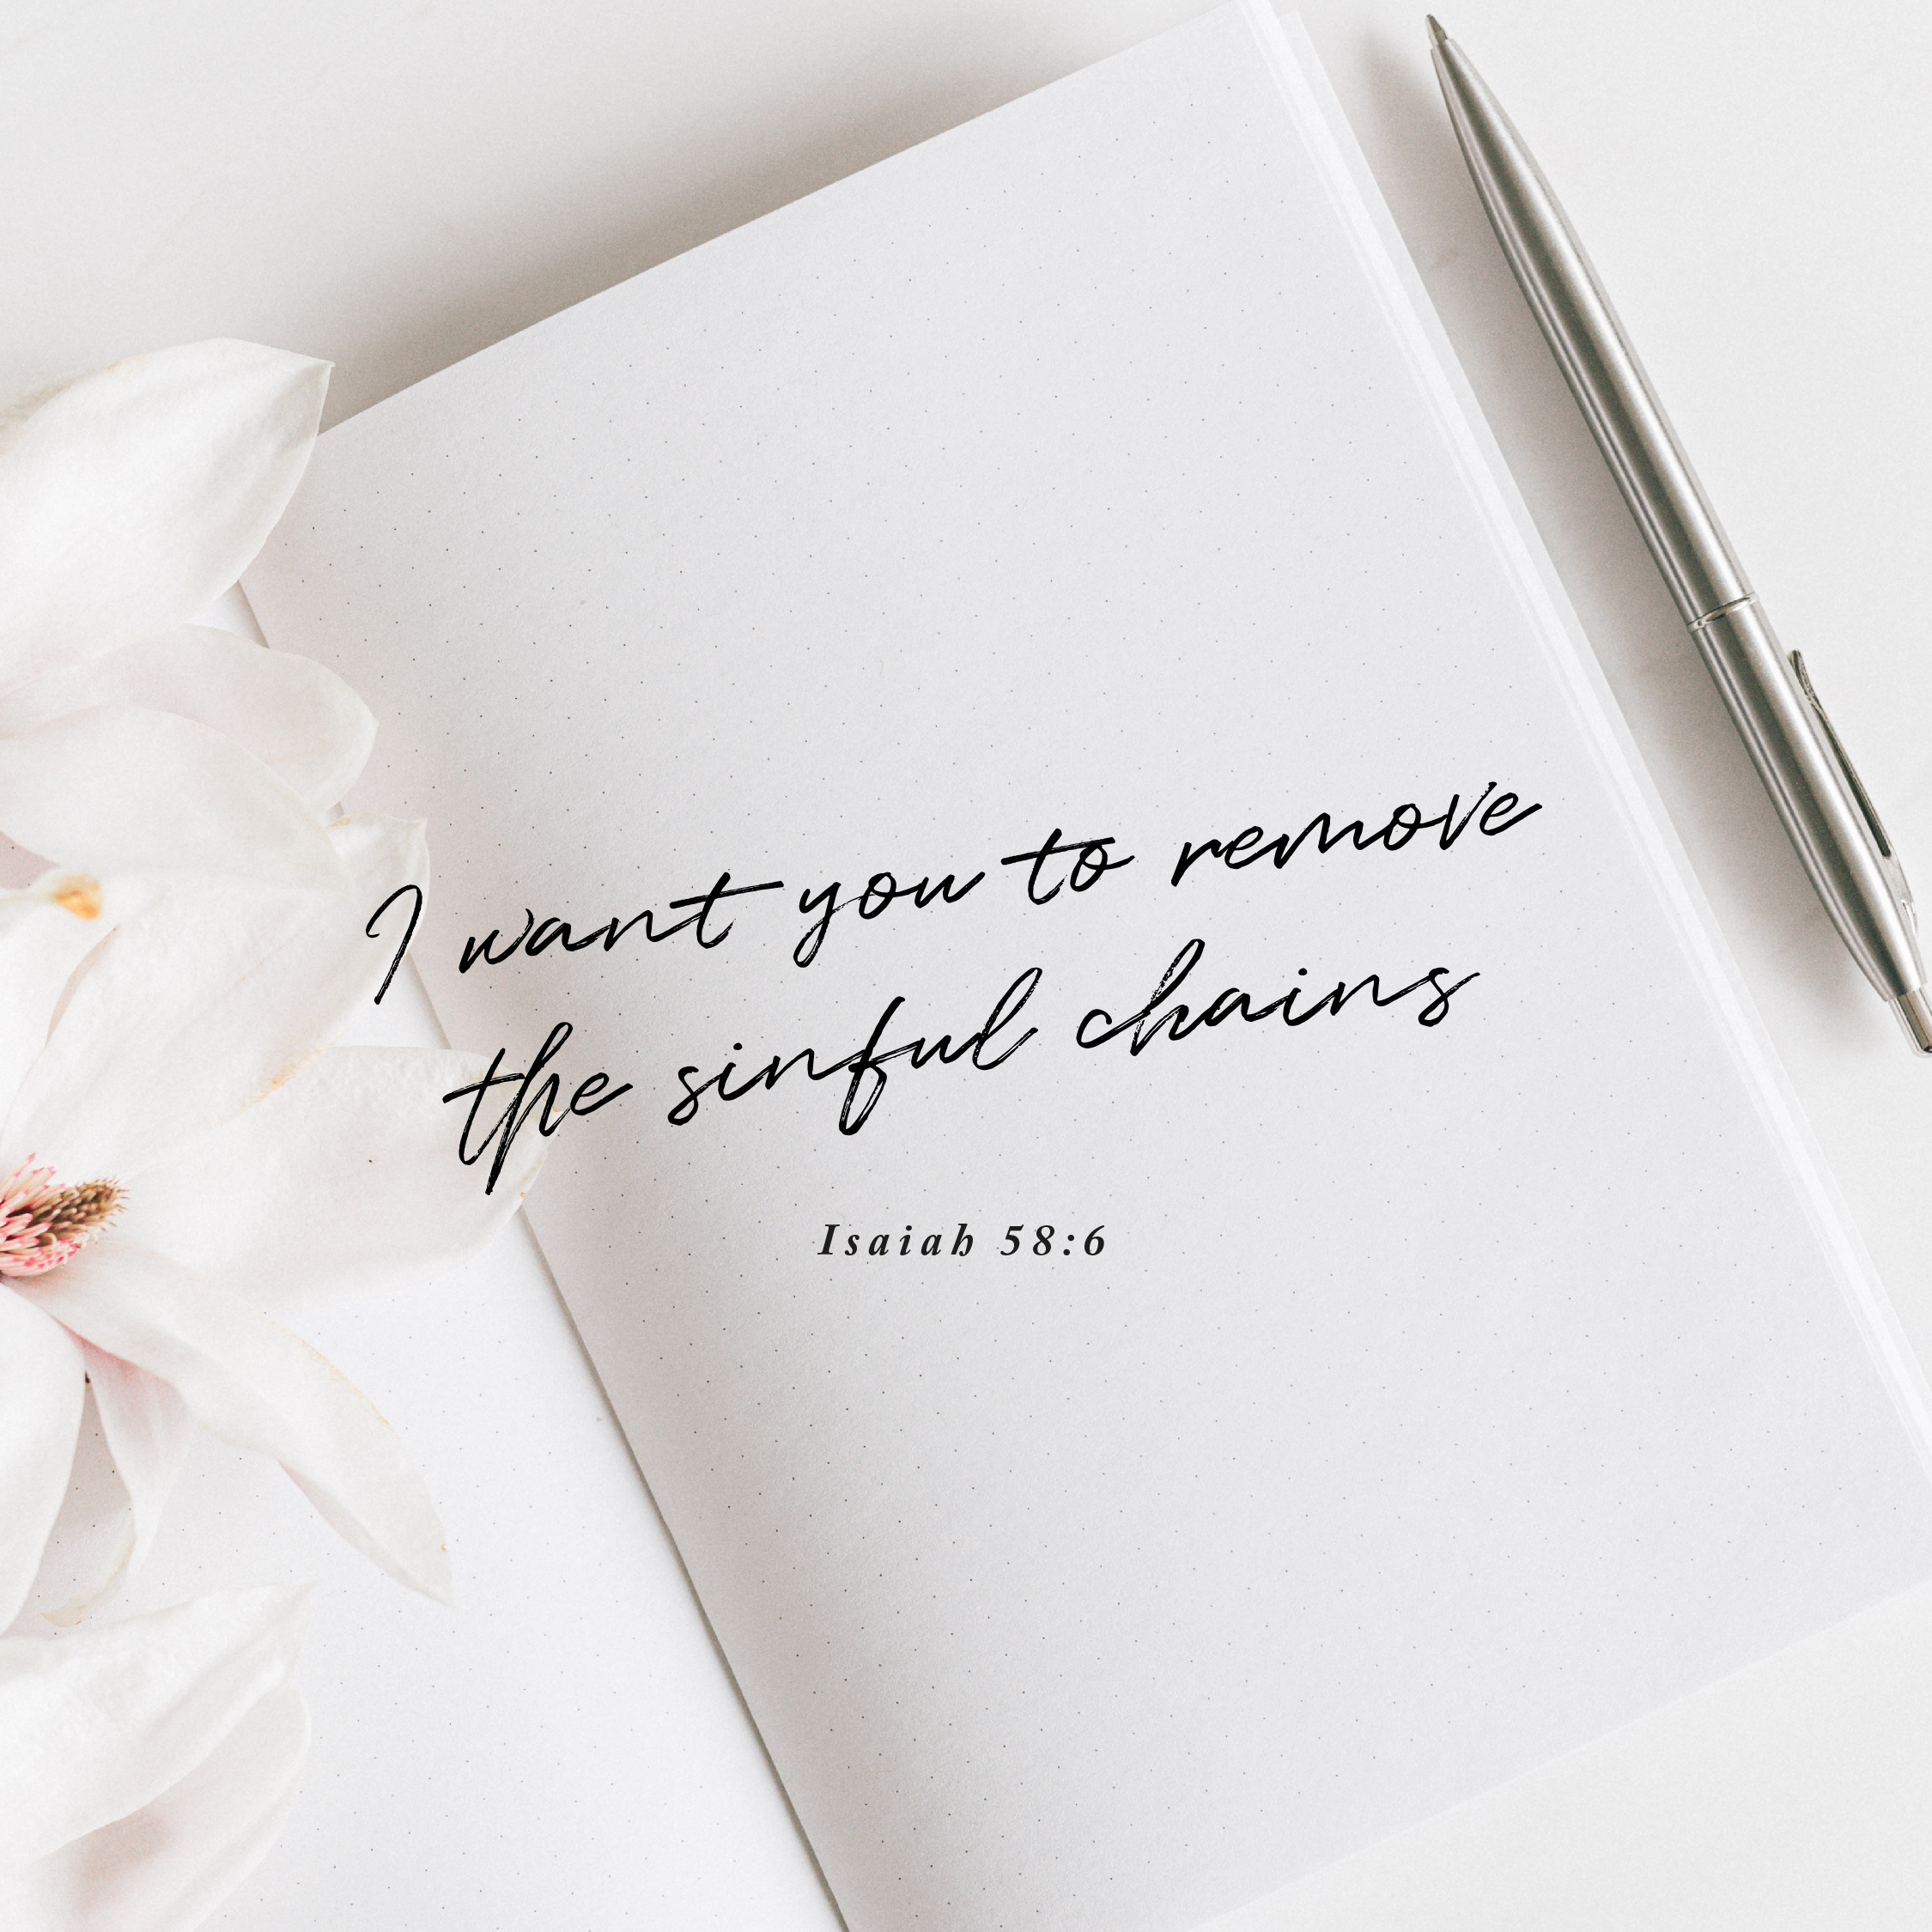 I want you to remove
the sinful chains
Isaiah 58:6